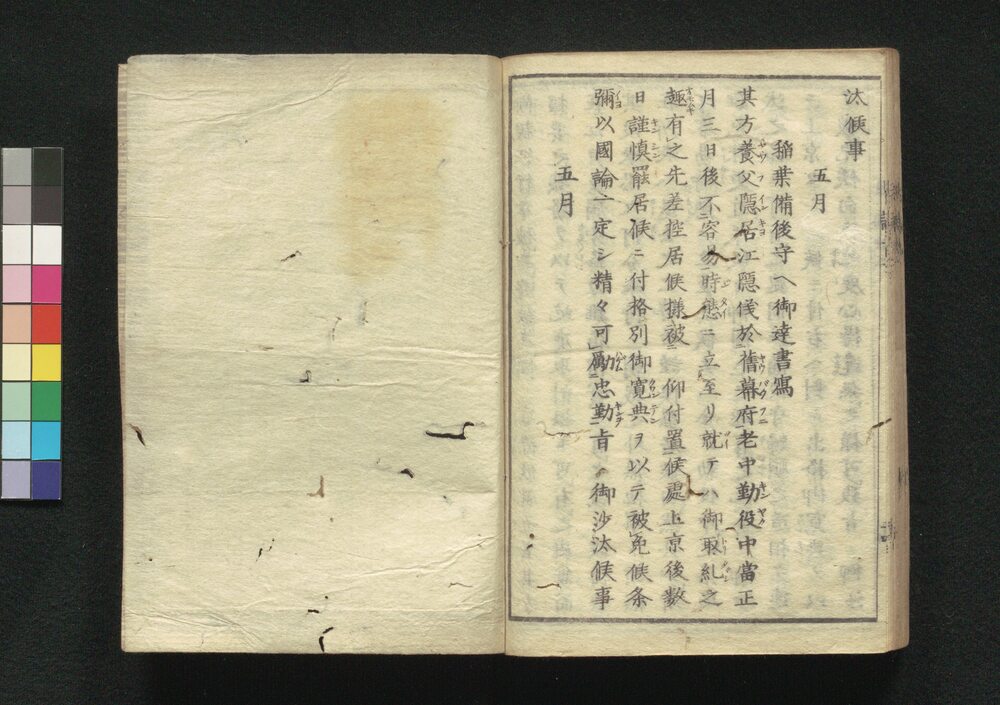 汰候事
五月
稲葉備後守ヘ御達書寫
其方養父隠居江隠儀於舊幕府老中勤役中當正
月三日後不容易時態ニ立至リ就テハ御取糺之
趣有之先差控居候様被 仰付置候處上京後數
日謹慎罷居候ニ付格別御寛典ヲ以テ被免候条
彌以國論一定シ精々可勵忠勤旨 御沙汰候事
五月